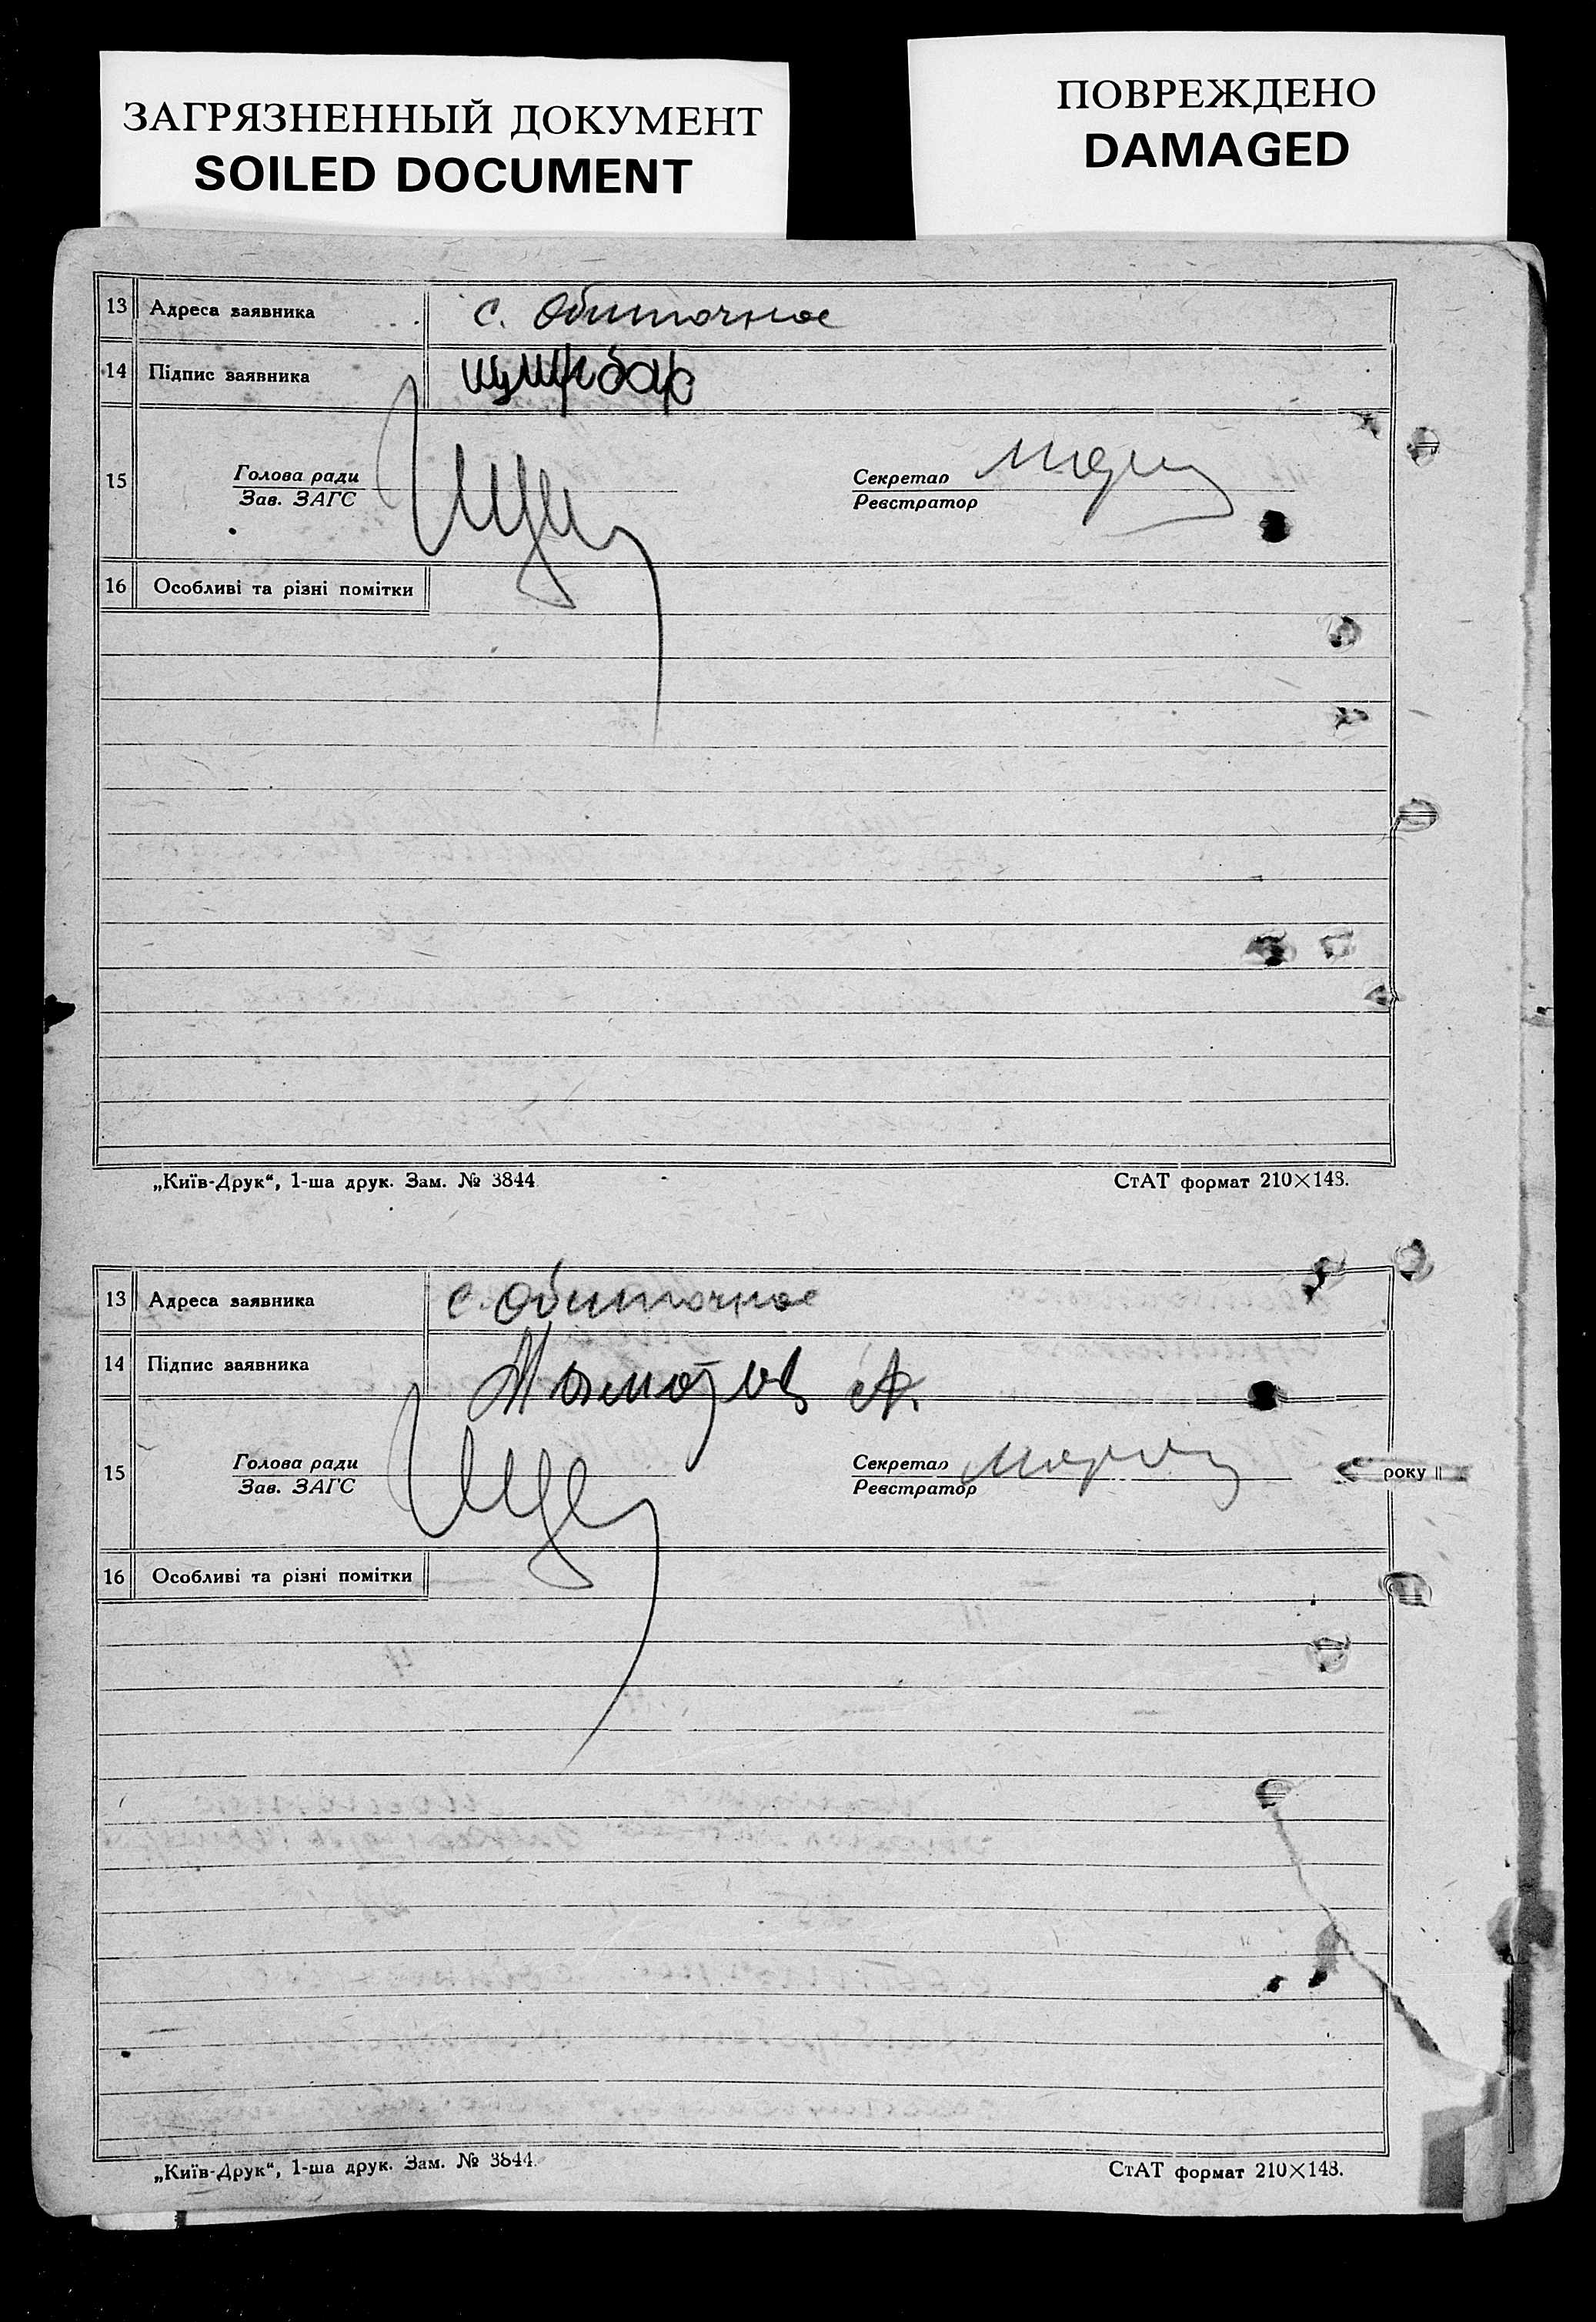 ЗАГРЯЗНЕННЫЙ ДОКУМЕНТ
SOILED DOCUMENT
ПОВРЕЖДЕНО
DAMAGED
13 Адреса заявника с. Обиточное
14 Підпис заявника
15 Голова ради Секретар
Зав. ЗАГС Реєстратор
16 Особливі та різні помітки
„Київ-Друк“, 1-ша друк. Зам. № 3844 СтАТ формат 210×148.
13 Адреса заявника с. Обиточное
14 Підпис заявника
15 Голова ради Секретар року
Зав. ЗАГС Реєстратор
16 Особливі та різні помітки
„Київ-Друк“, 1-ша друк. Зам. № 3844. СтАТ формат 210×148.